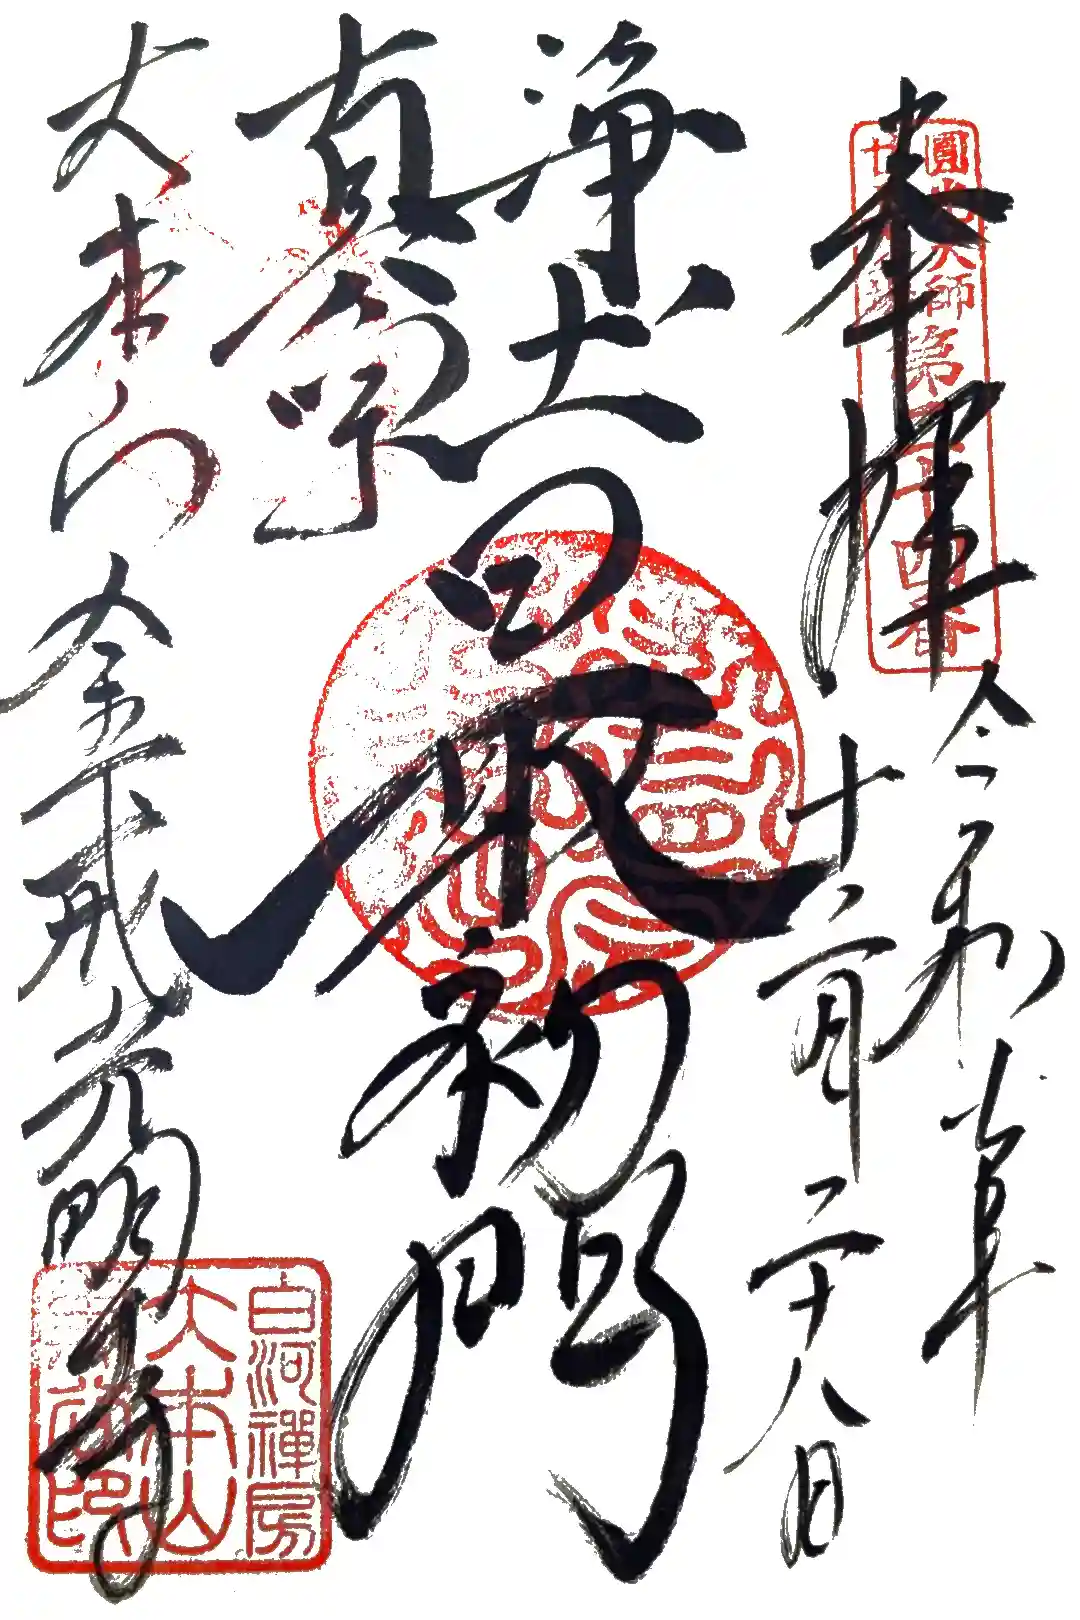 奉拝
圓光大師第二十四番
令和年
十二月二十八日
浄土
真宗
最初門
大本山
金戒光明寺
白河禪房
大本山